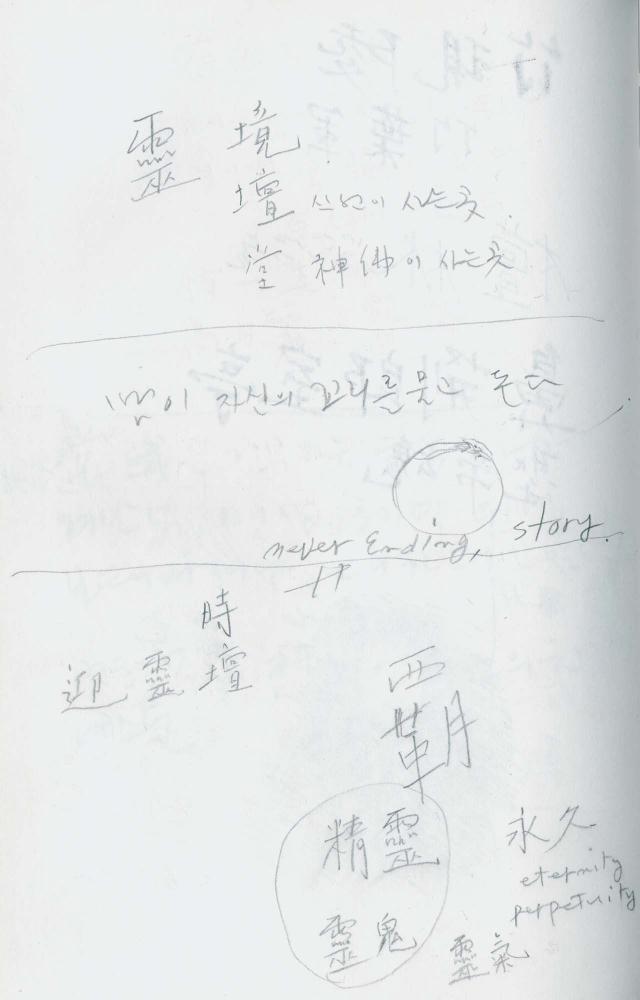 靈 境
壇 쓰님이 사는곳.
堂 神佛이 사는곳
뱀이 자신의 꼬리를 물고 돈다
never Ending, story.
時
迎 靈 壇
覇
精靈
永久
eternity
perpetuity
靈鬼
靈氣